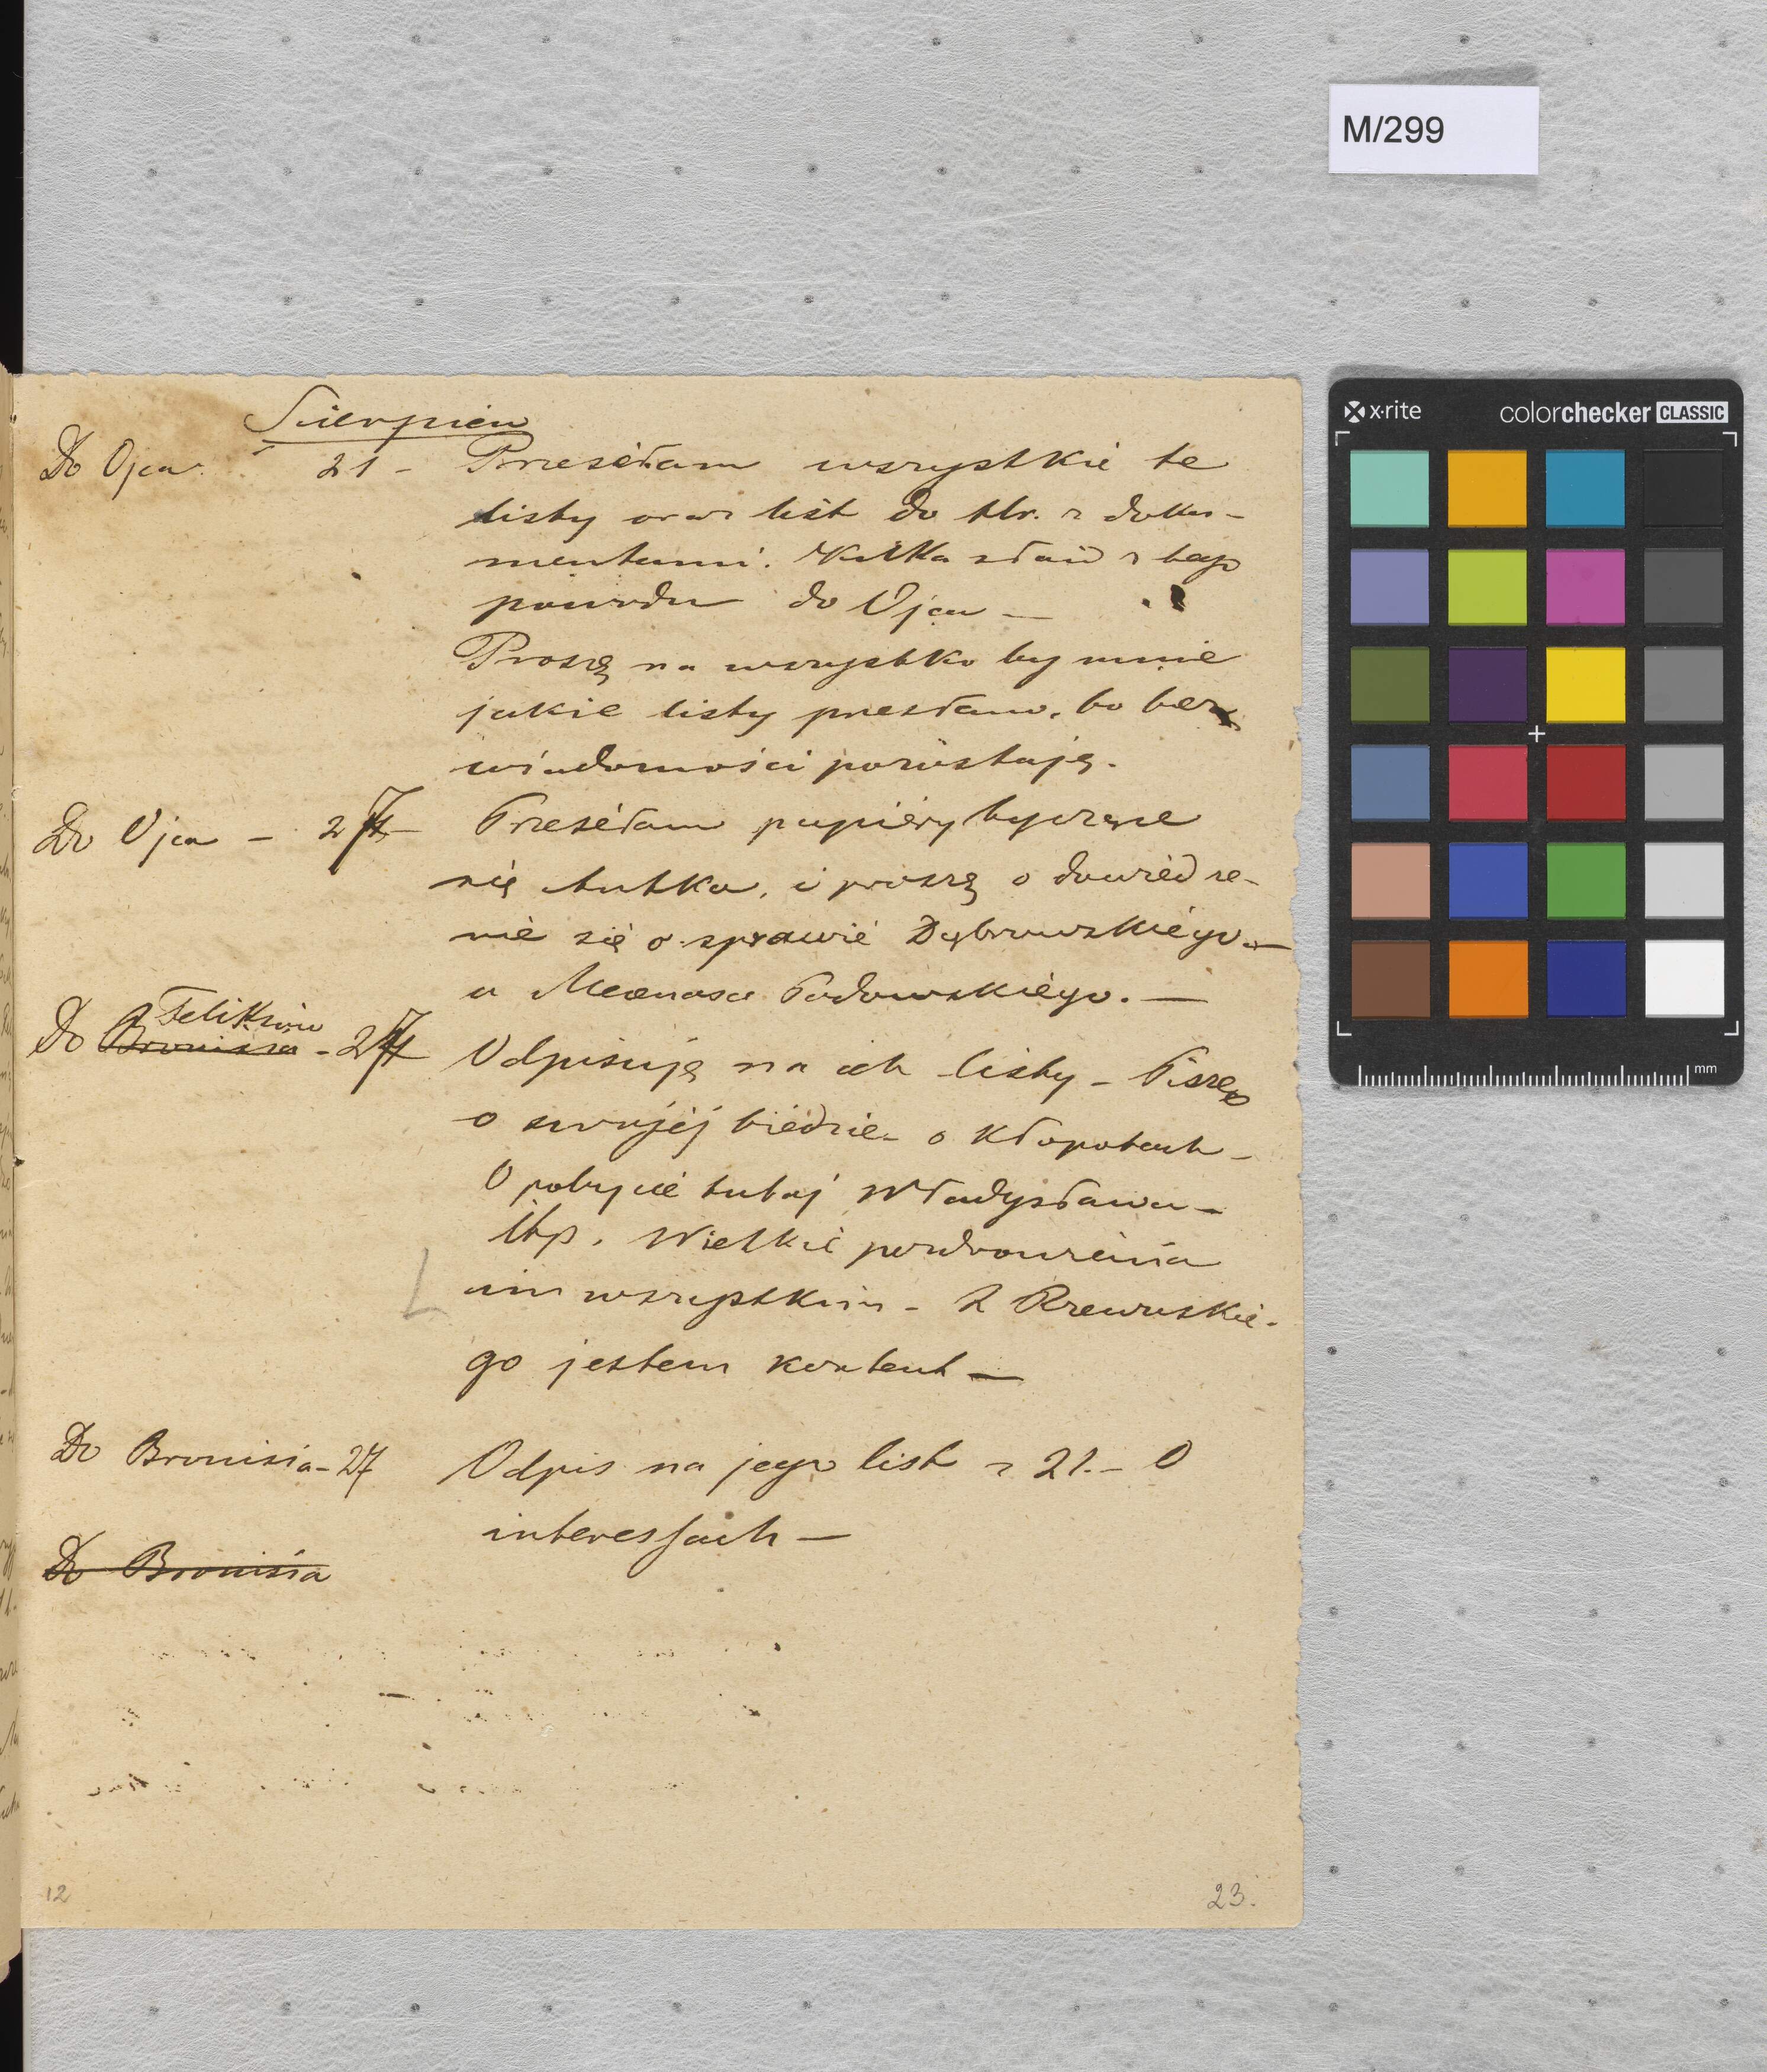 M/299
x·rite colorchecker CLASSIC
mm
Sierpień
Do Ojca. 21 - Przesełam wszystkie te
listy oraz list do Hr. z doku-
mentami. Kilka zdań z tego
powodu do Ojca —
Proszę na wszystko by mnie
jakie listy przesłano, bo bez
wiadomości pozostaję.
Do Ojca - 27 - Przesełam papiery tyczące
się Lutka, i proszę o dowiedze-
nie się o sprawie Dąbrowskiego -
u Mecenasa Padowskiego. —
Feliksów
Do Bronisia - 27 Odpisuję na ich listy - Piszę
o swojej biedzie - o kłopotach -
O pobycie tutaj Władysława -
itp. Wielkie pozdrowienia
im wszystkim - Z Rzewuskie-
go jestem kontent —
Do Bronisia - 27 Odpis na jego list z 21. - O
interessach —
Do Bronisia
12
23.